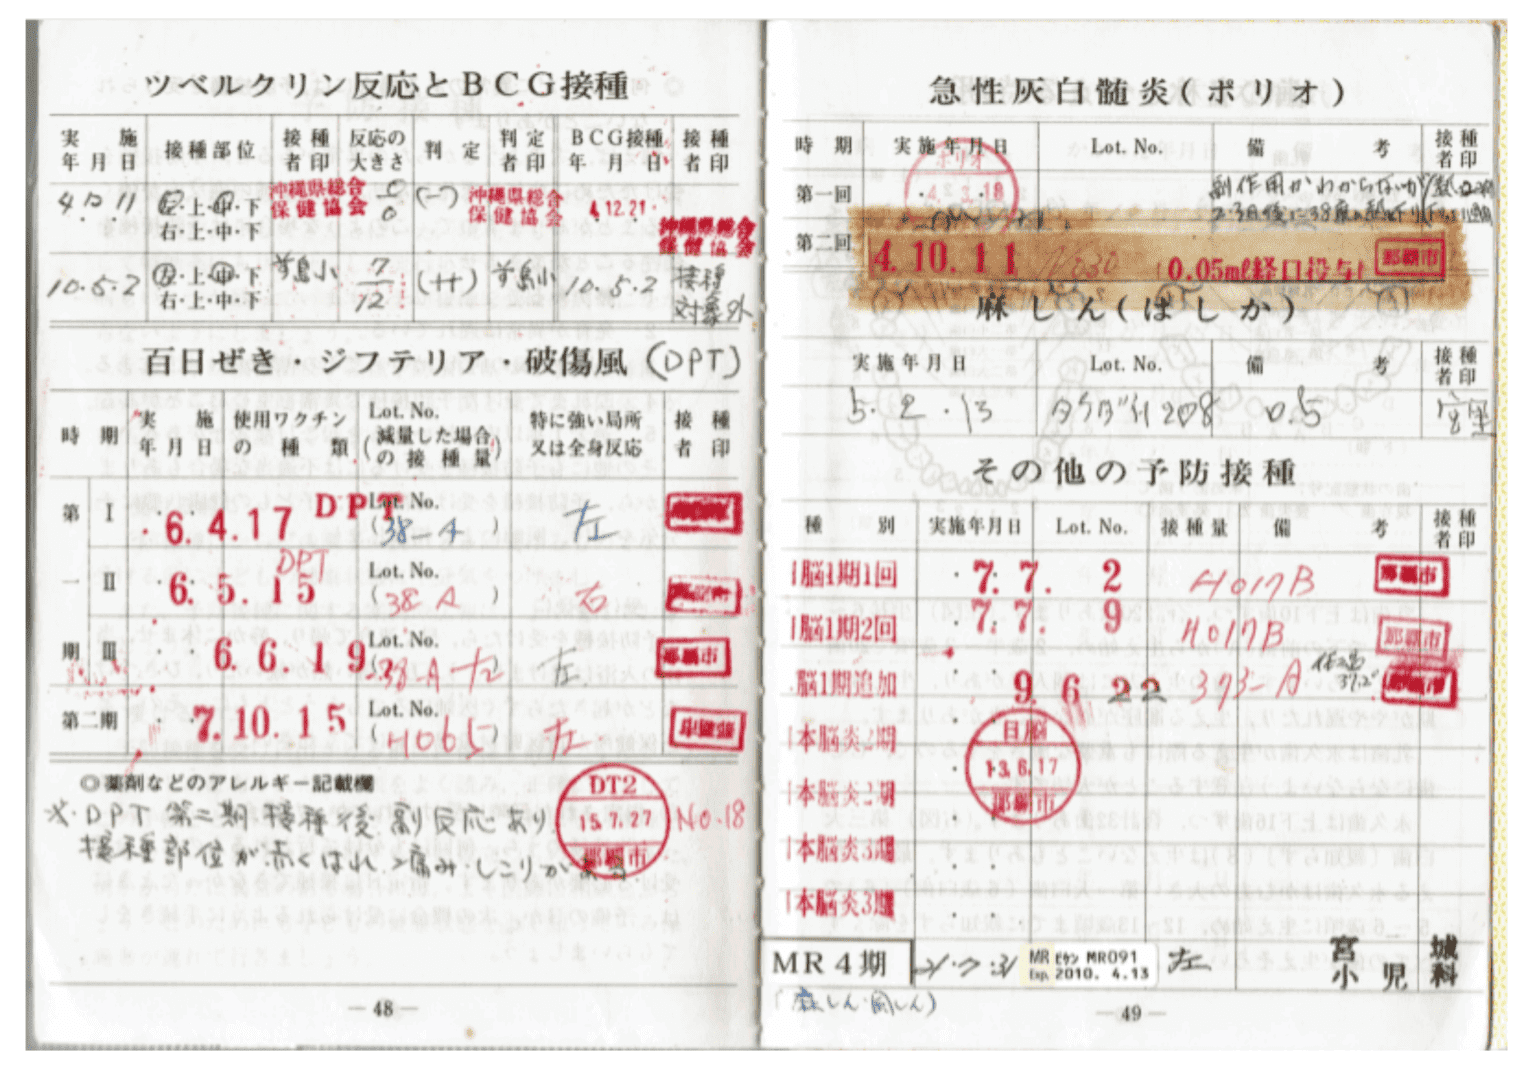 ツベルクリン反応とBCG接種
実施年月日 接種部位 接種者印 反応の大きさ 判定 判定者印 BCG接種年月日 接種者印
4.12.11 左・上・中・下 沖縄県総合保健協会 0/0 (－) 沖縄県総合保健協会 4.12.21 沖縄県総合保健協会
右・上・中・下
10.5.2 左・上・中・下 7/12 (＋) 10.5.2 接種対象外
右・上・中・下
百日ぜき・ジフテリア・破傷風(DPT)
時期 実施年月日 使用ワクチンの種類 Lot. No. (減量した場合の接種量) 特に強い局所又は全身反応 接種者印
第一期 I 6.4.17 DPT Lot. No. (38 A) 左
II 6.5.15 DPT Lot. No. (38 A) 右
III 6.6.19 Lot. No. 38-A 左 左 那覇市
第二期 7.10.15 Lot. No. (H005) 左
◎薬剤などのアレルギー記載欄
※・DPT 第二期接種後、副反応あり、
接種部位が赤くはれ、痛み・しこりが
DT2 15.7.27 那覇市 No.18
— 48 —
急性灰白髄炎(ポリオ)
時期 実施年月日 Lot. No. 備考 接種者印
第一回 ポリオ 4.3.18
第二回 4.10.11 No30 0.05ml経口投与 那覇市
麻しん(はしか)
実施年月日 Lot. No. 備考 接種者印
5.2.13 0.5 宮里
その他の予防接種
種別 実施年月日 Lot. No. 接種量 備考 接種者印
脳1期1回 7.7.2 H017B 那覇市
脳1期2回 7.7.9 H017B 那覇市
脳1期追加 9.6.22 393-A
本脳炎2期 日脳 13.6.17 那覇市
本脳炎2期
本脳炎3期
本脳炎3期
MR4期 21.7.31 MR ﾋﾞｹﾝ MR091 左 宮城
Exp. 2010. 4.13 小児科
(麻しん・風しん)
— 49 —